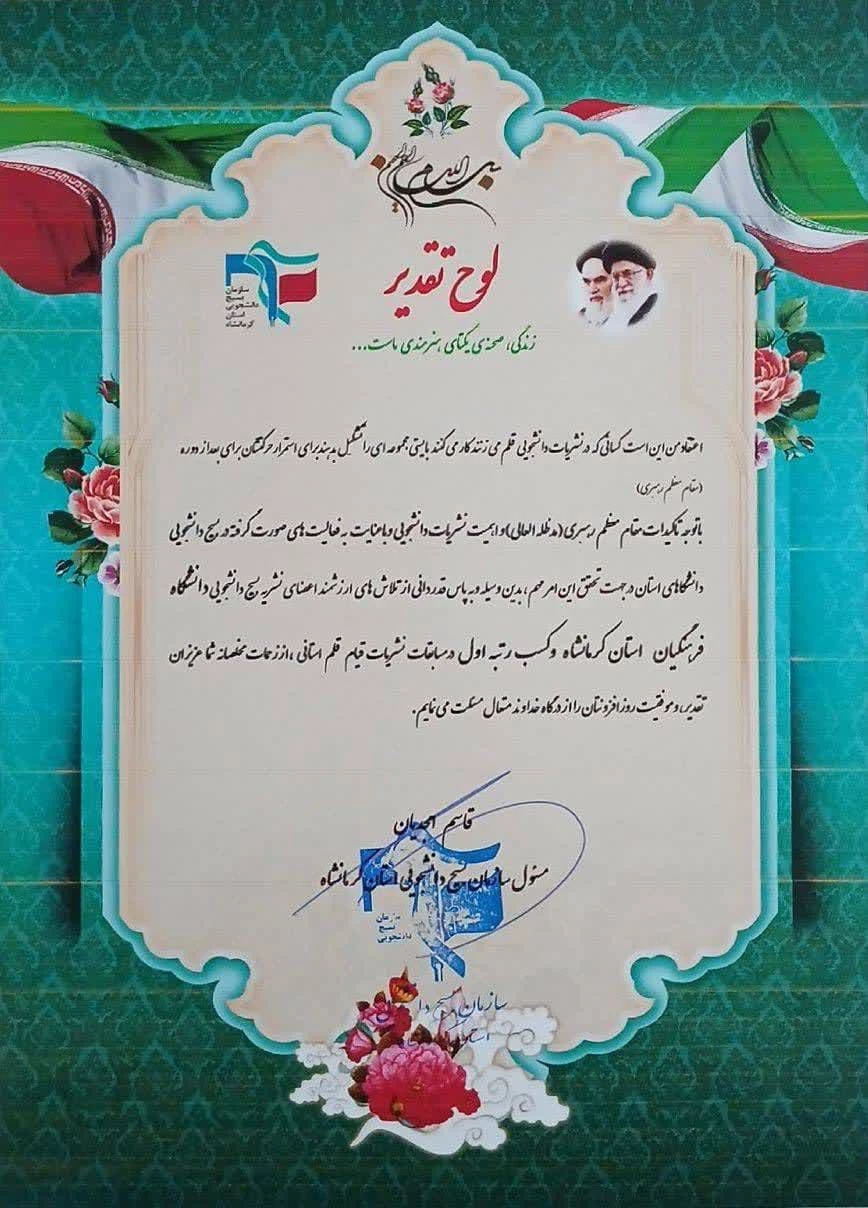 بسم الله الرحمن الرحیم
لوح تقدیر
سازمان
بسیج
دانشجویی
استان
کرمانشاه
زندگی، صحنه‌ی یکتای هنرمندی ماست...
اعتقاد من این است کسانی که در نشریات دانشجویی قلم می زنند کار می کنند بایستی مجموعه ای را تشکیل بدهند برای استمرار حرکتشان برای بعد از دوره
(مقام معظم رهبری)
با توجه تاکیدات مقام معظم رهبری (مدظله العالی) و اهمیت نشریات دانشجویی و با عنایت به فعالیت های صورت گرفته در بسیج دانشجویی
دانشگاه‌های استان در جهت تحقق این امر مهم، بدین وسیله و به پاس قدردانی از تلاش های ارزشمند اعضای نشریه بسیج دانشجویی دانشگاه
فرهنگیان استان کرمانشاه و کسب رتبه اول در مسابقات نشریات قیام قلم استانی، از زحمات مخلصانه شما عزیزان
تقدیر، و موفقیت روز افزونتان را از درگاه خداوند متعال مسئلت می نمایم.
قاسم امجدیان
مسئول سازمان بسیج دانشجویی استان کرمانشاه
سازمان
بسیج
دانشجویی
سازمان بسیج